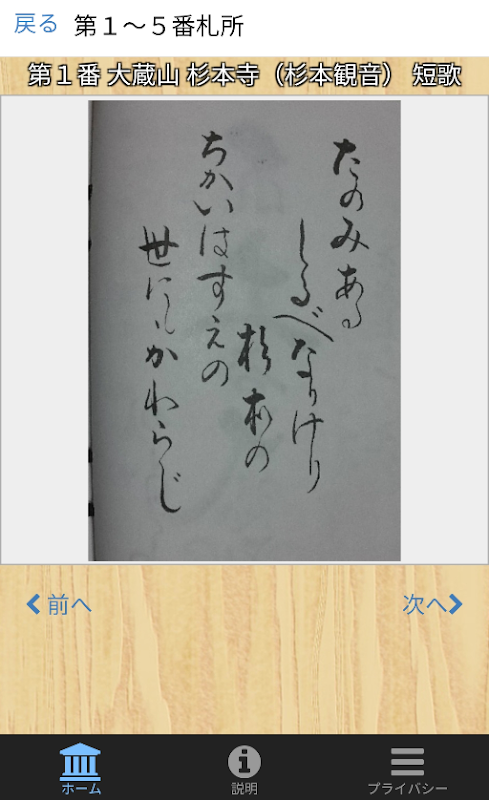 戻る 第１〜５番札所
第１番 大蔵山 杉本寺（杉本観音） 短歌
たのみある
しるべなりけり
杉本の
ちかいはすえの
世にもかわらじ
前へ 次へ
ホーム 説明 プライバシー